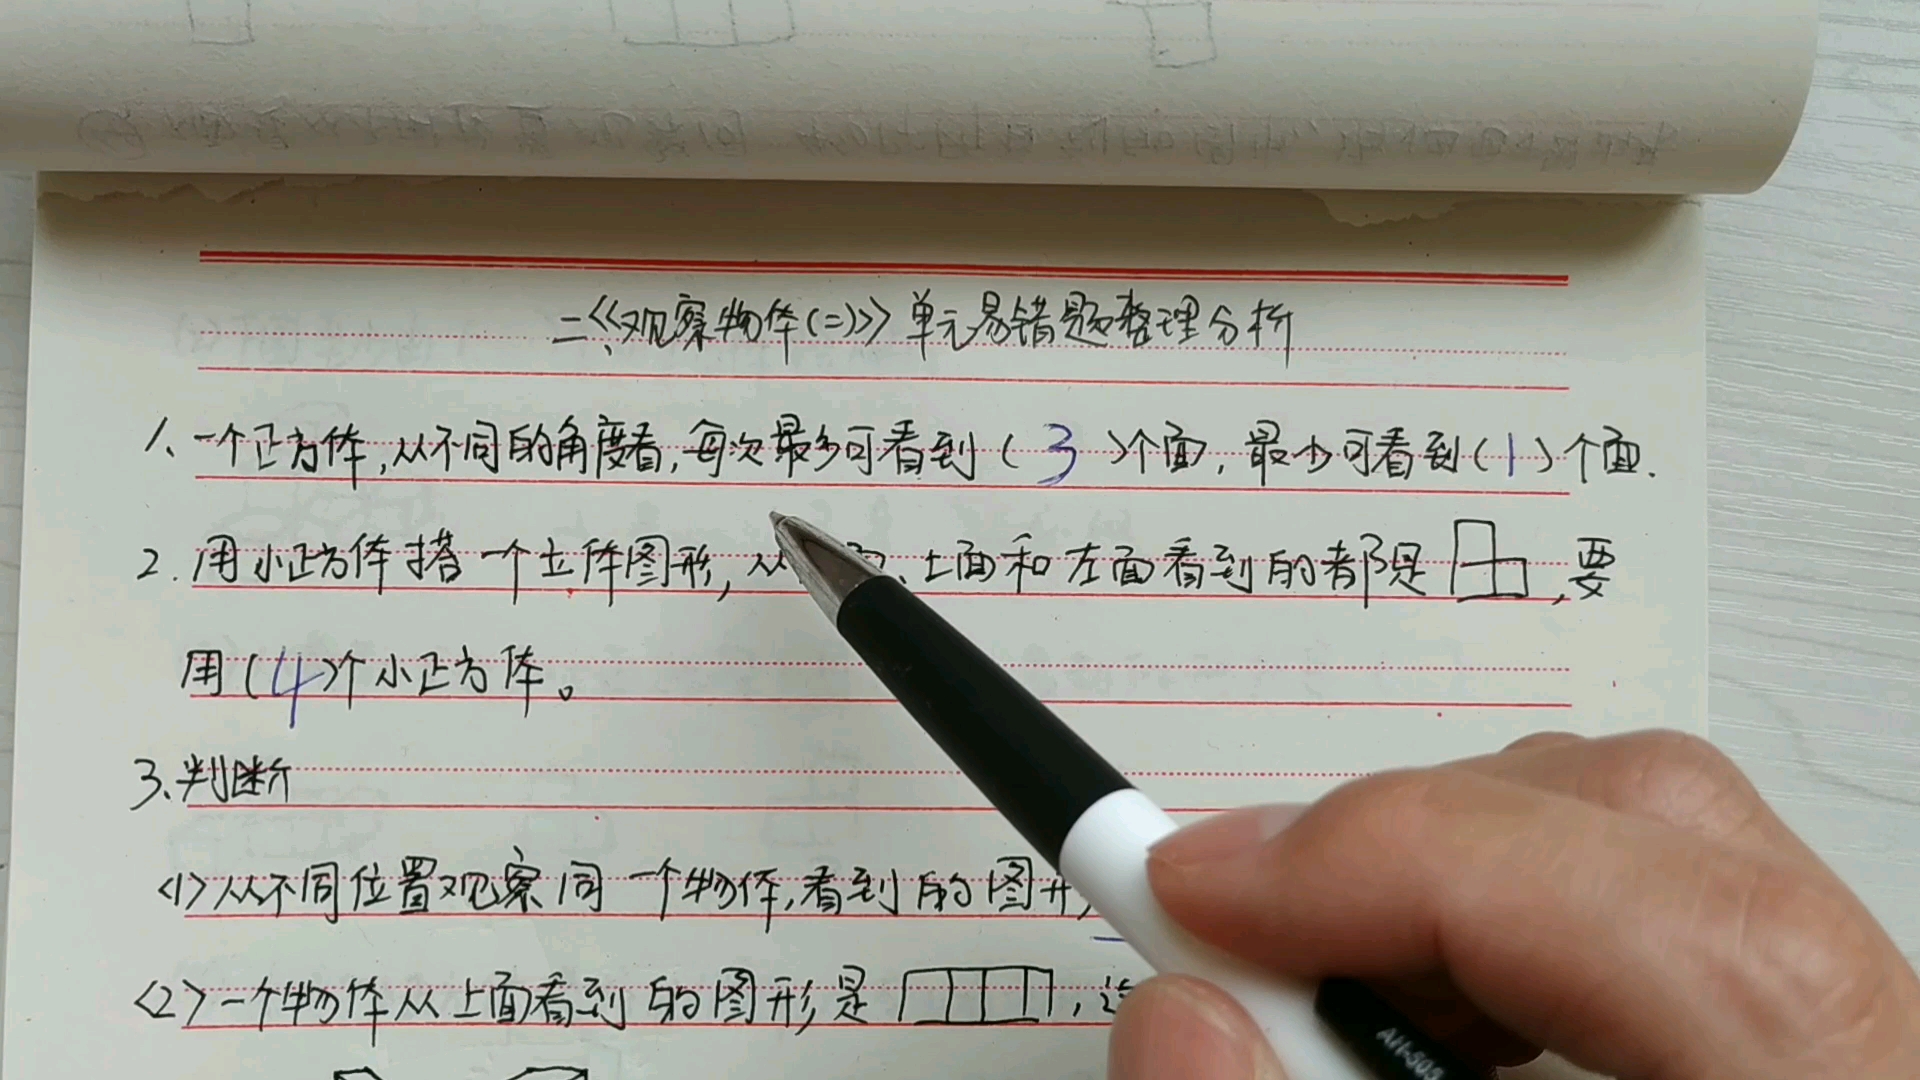 二、《观察物体(二)》单元易错题整理分析
1、一个正方体,从不同的角度看,每次最多可看到(3)个面,最少可看到(1)个面.
2.用小正方体搭一个立体图形,从面、上面和左面看到的都是,要
用(4)个小正方体。
3、判断
<1>从不同位置观察同一个物体,看到的图形
<2>一个物体从上面看到的图形是,这